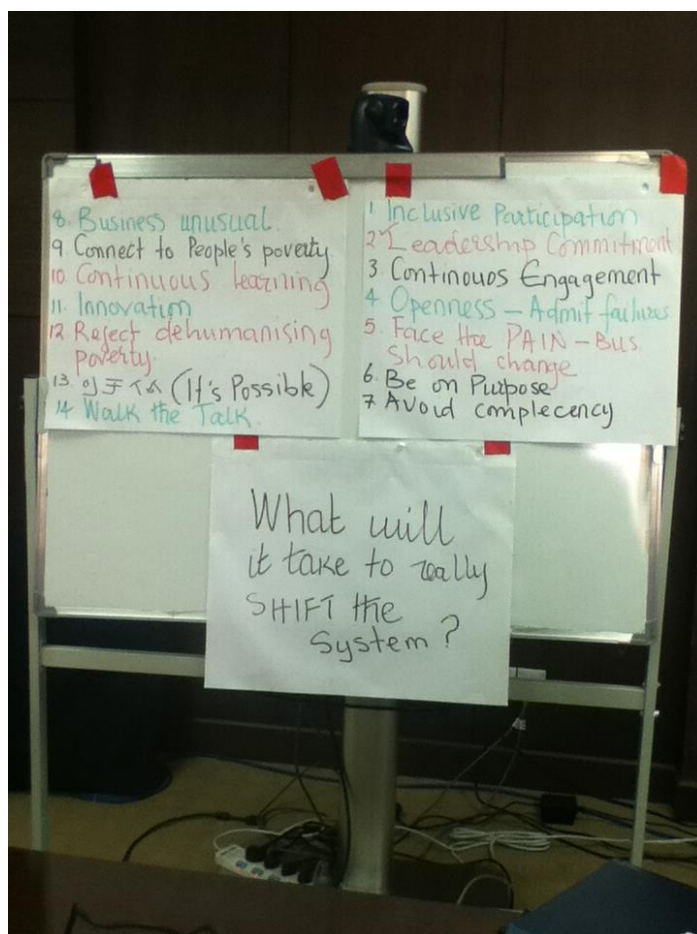 8. Business unusual.
9. Connect to People's poverty
10. Continuous learning
11. Innovation
12. Reject dehumanising
poverty.
13. (It's Possible)
14 Walk the Talk
1 Inclusive Participation
2 Leadership Commitment
3 Continouos Engagement
4 Openness – Admit failures
5. Face the PAIN – Bus
Should change
6. Be on Purpose
7 Avoid complecency
What will
it take to really
SHIFT the
System?